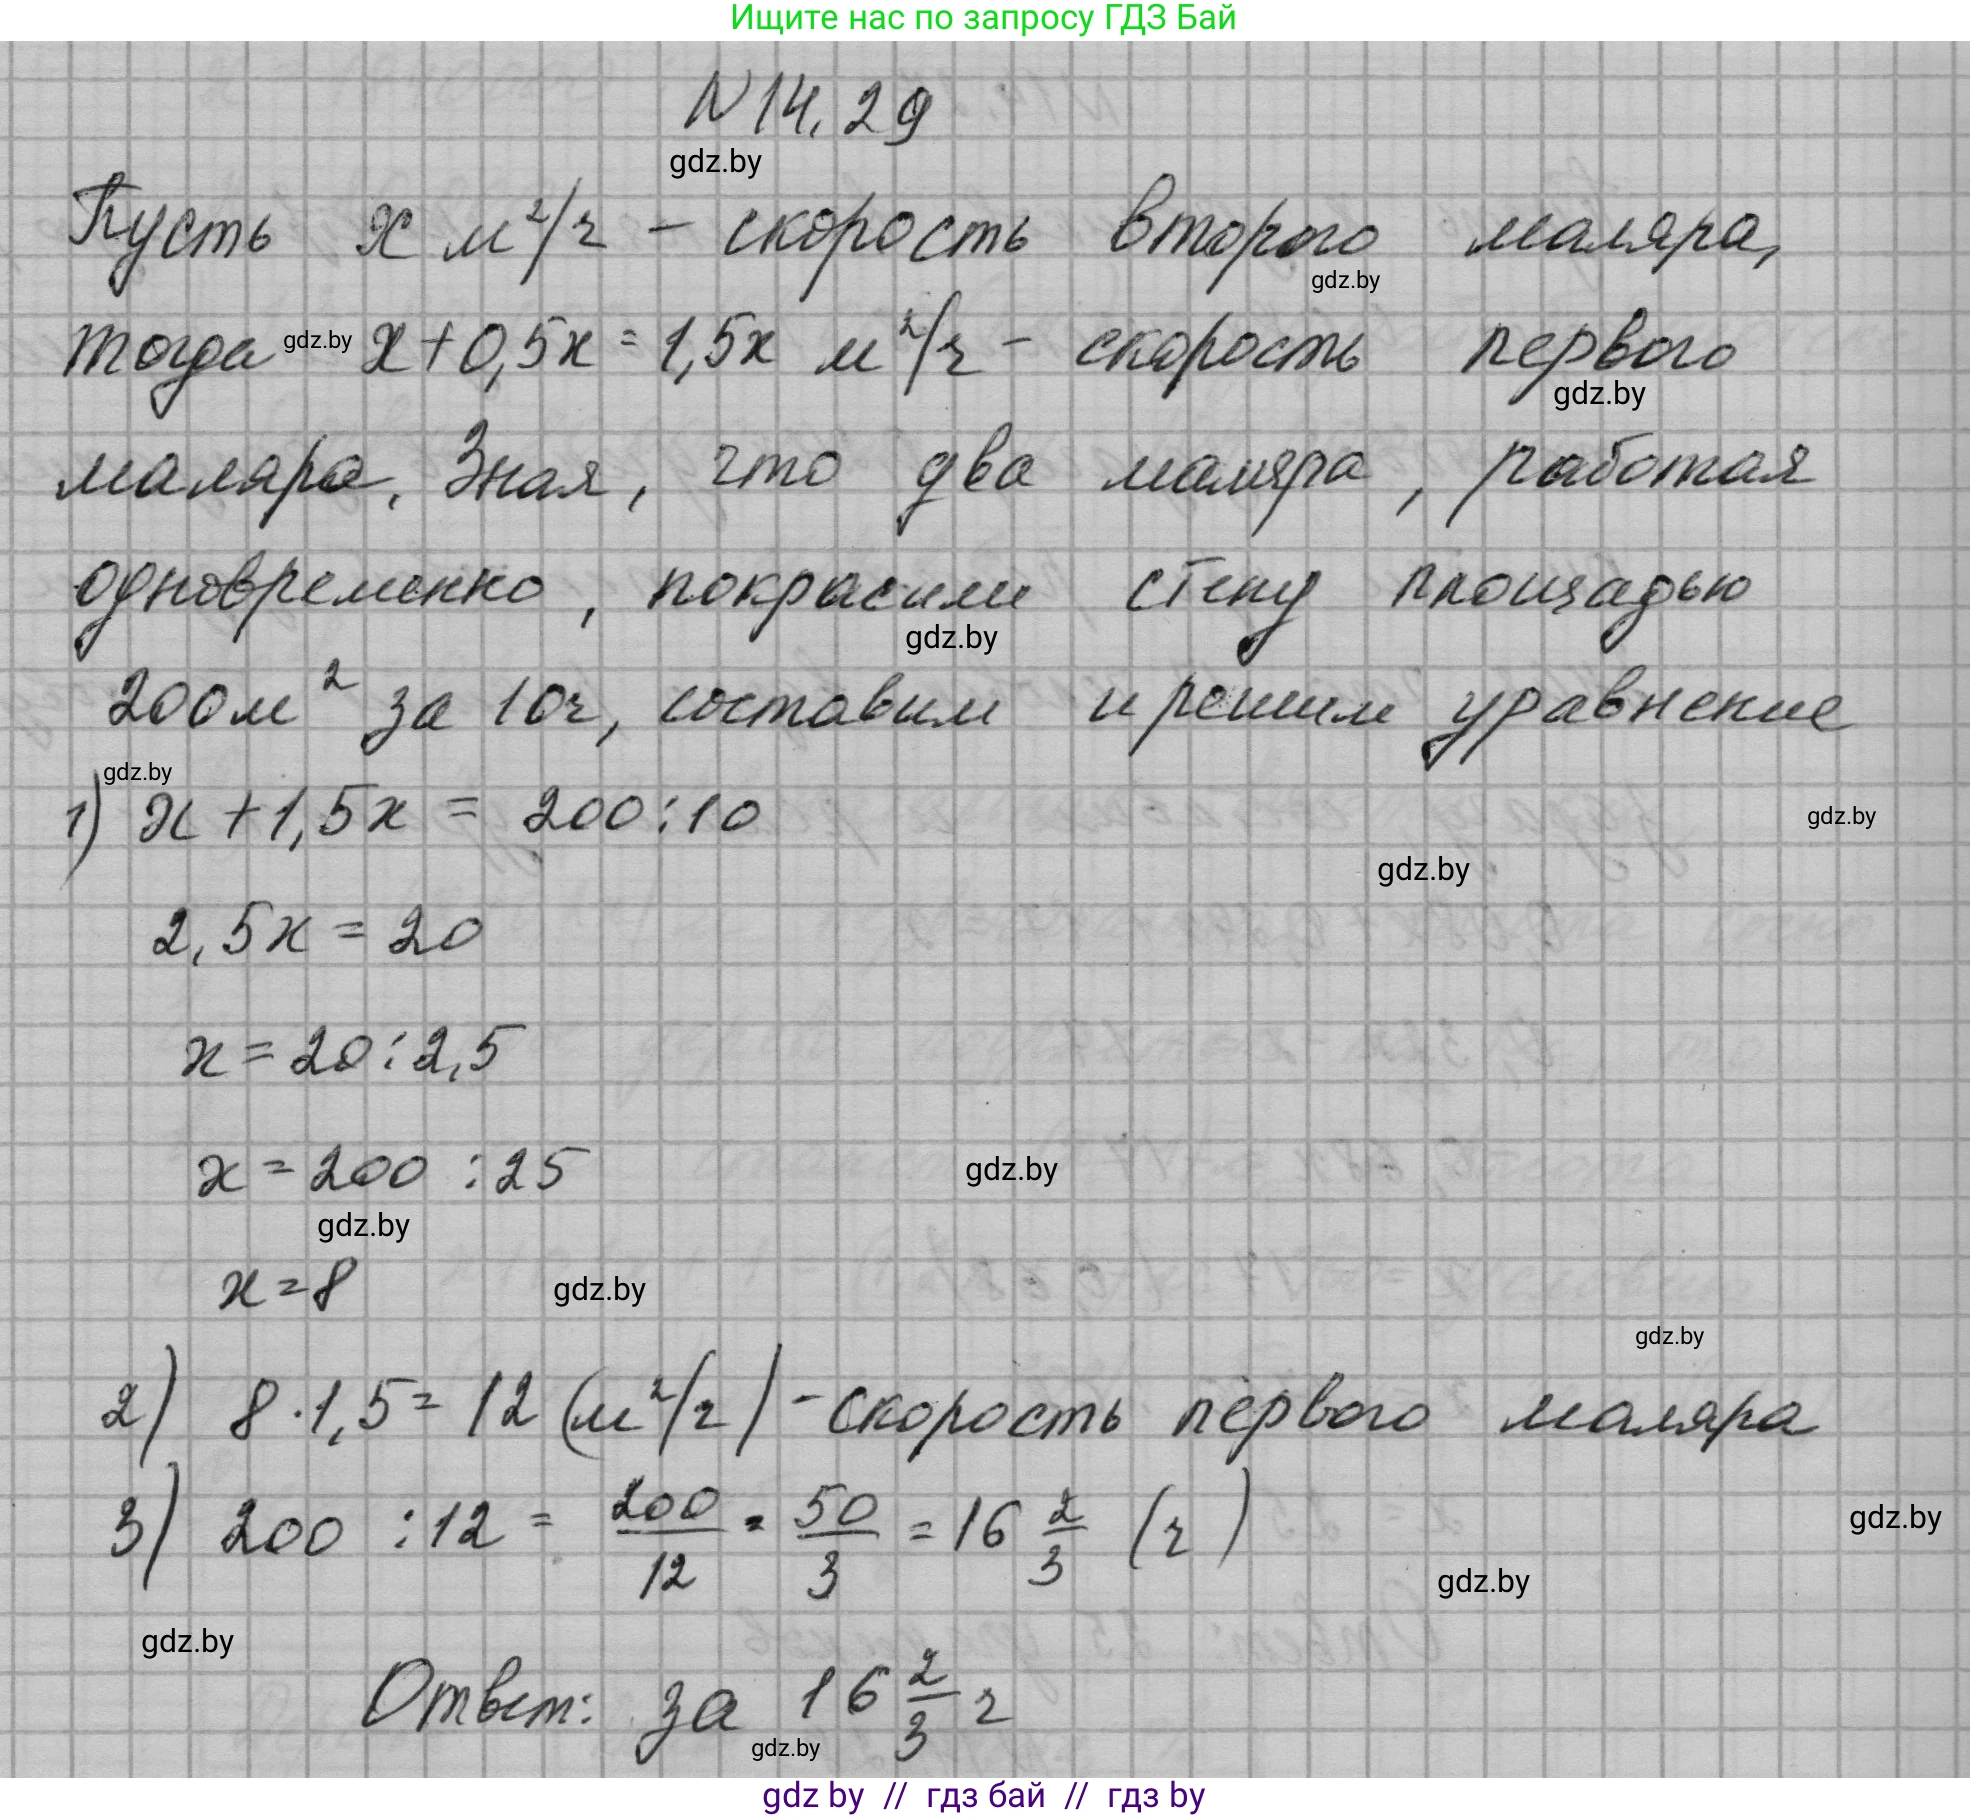 Ищите нас по запросу ГДЗ Бай
N 14.29
gdz.by
Пусть x м²/ч - скорость второго маляра,
gdz.by
тогда gdz.by x + 0,5x = 1,5x м²/ч - скорость первого
gdz.by
маляра. Зная, что два маляра, работая
одновременно, покрасили стену площадью
gdz.by
200м² за 10ч, составим и решим уравнение
gdz.by
1) x + 1,5x = 200 : 10
gdz.by
gdz.by
2,5x = 20
x = 20 : 2,5
x = 200 : 25
gdz.by
gdz.by
x = 8
gdz.by
gdz.by
2) 8 · 1,5 = 12 (м²/ч) - скорость первого маляра
3) 200 : 12 = 200/12 = 50/3 = 16 2/3 (ч)
gdz.by
gdz.by
gdz.by
Ответ: за 16 2/3 ч
gdz.by
gdz by // гдз бай // гдз by